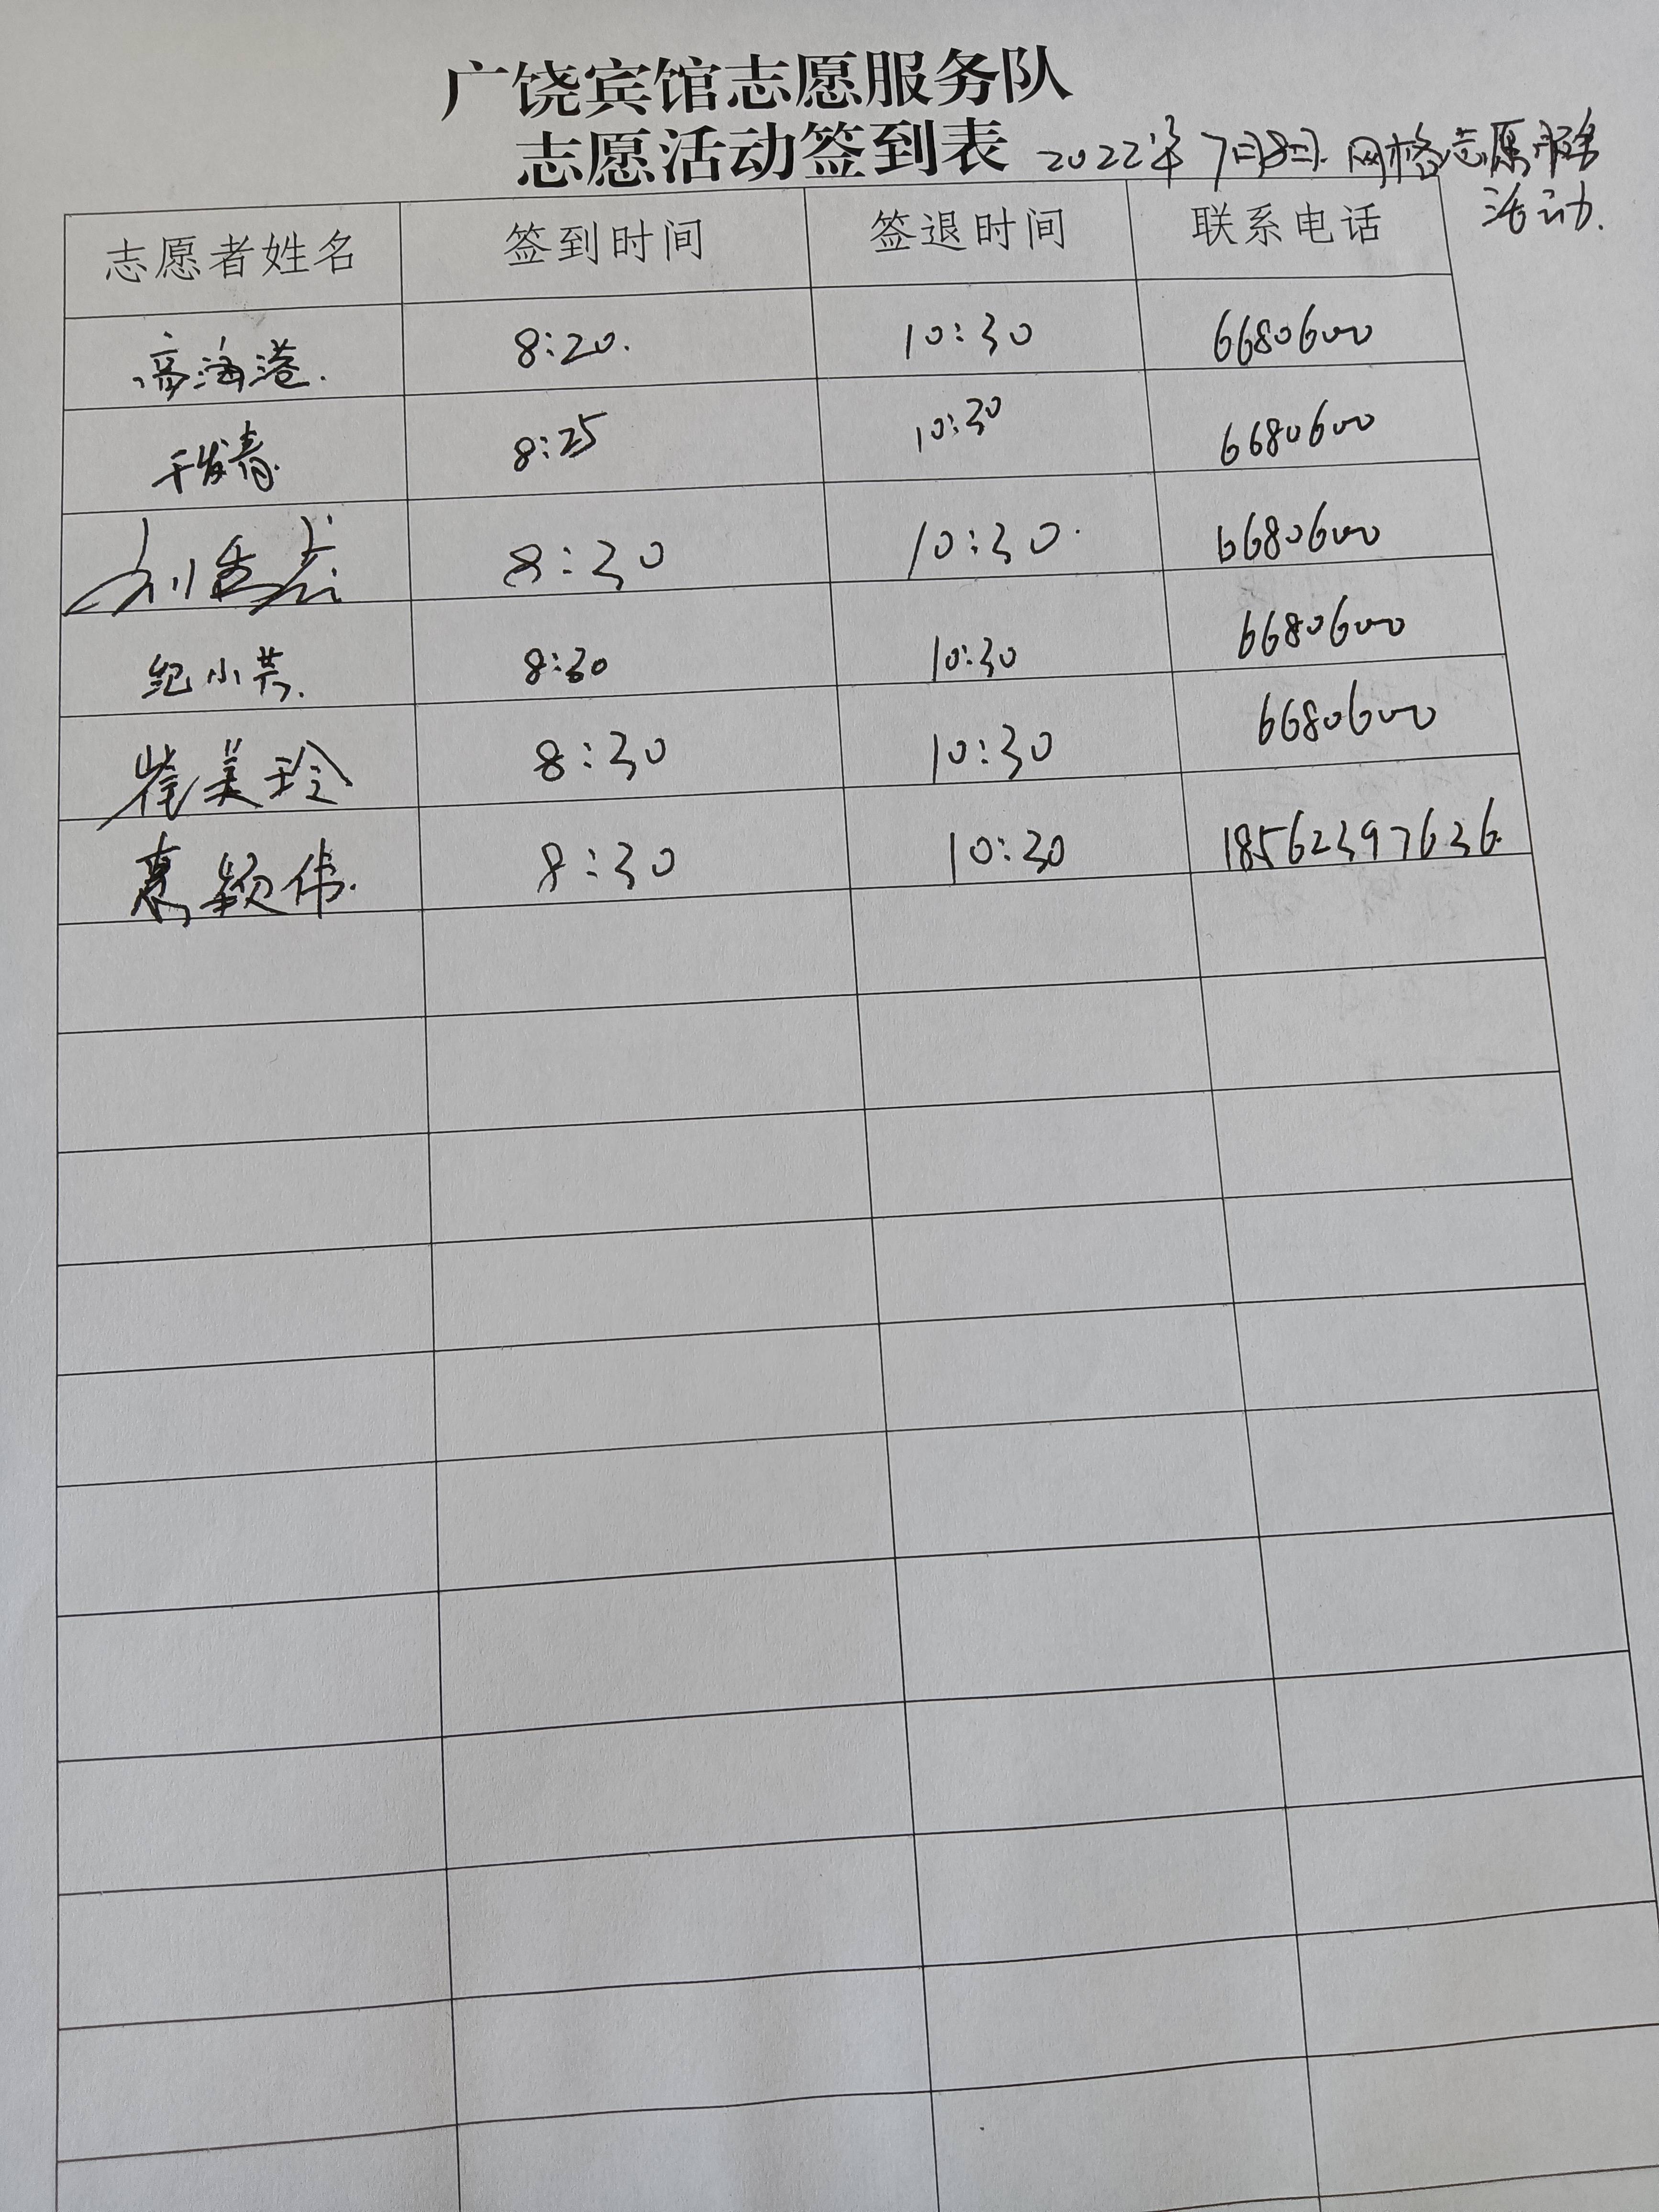 广饶宾馆志愿服务队
志愿活动签到表 2022年7月8日 网格志愿服务
活动.
志愿者姓名 签到时间 签退时间 联系电话
高海港. 8:20. 10:30 6680600
8:25 10:30 6680600
8:30 10:30. 6680600
纪小芸. 8:30 10:30 6680600
崔美玲 8:30 10:30 6680600
颖伟. 8:30 10:30 18562397636.